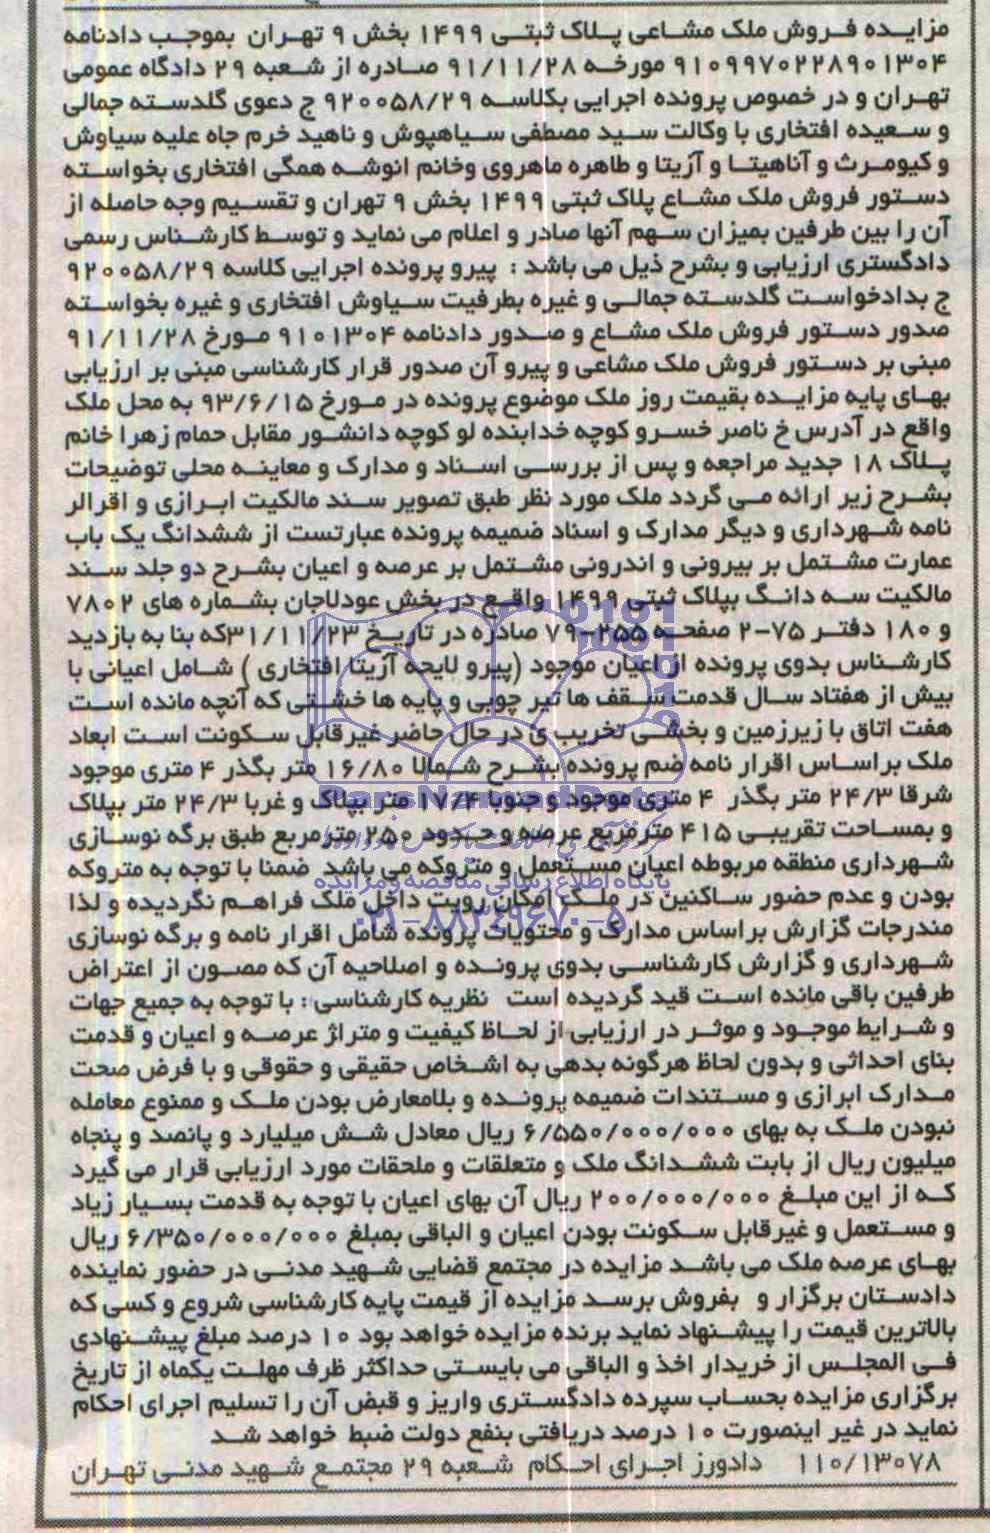 مزایده فروش ملک مشاعی پلاک ثبتی ۱۴۹۹ بخش ۹ تهران بموجب دادنامه
۹۱۰۹۹۷۰۲۲۸۹۰۱۳۰۴ مورخه ۹۱/۱۱/۲۸ صادره از شعبه ۲۹ دادگاه عمومی
تهران و در خصوص پرونده اجرایی بکلاسه ۹۲۰۰۵۸/۲۹ ج دعوی گلدسته جمالی
و سعیده افتخاری با وکالت سید مصطفی سیاهپوش و ناهید خرم جاه علیه سیاوش
و کیومرث و آناهیتا و آزیتا و طاهره ماهروی وخانم انوشه همگی افتخاری بخواسته
دستور فروش ملک مشاع پلاک ثبتی ۱۴۹۹ بخش ۹ تهران و تقسیم وجه حاصله از
آن را بین طرفین بمیزان سهم آنها صادر و اعلام می نماید و توسط کارشناس رسمی
دادگستری ارزیابی و بشرح ذیل می باشد : پیرو پرونده اجرایی کلاسه ۹۲۰۰۵۸/۲۹
ج بدادخواست گلدسته جمالی و غیره بطرفیت سیاوش افتخاری و غیره بخواسته
صدور دستور فروش ملک مشاع و صدور دادنامه ۹۱۰۱۳۰۴ مورخ ۹۱/۱۱/۲۸
مبنی بر دستور فروش ملک مشاعی و پیرو آن صدور قرار کارشناسی مبنی بر ارزیابی
بهای پایه مزایده بقیمت روز ملک موضوع پرونده در مورخ ۹۳/۶/۱۵ به محل ملک
واقع در آدرس خ ناصر خسرو کوچه خدابنده لو کوچه دانشور مقابل حمام زهرا خانم
پلاک ۱۸ جدید مراجعه و پس از بررسی اسناد و مدارک و معاینه محلی توضیحات
بشرح زیر ارائه می گردد ملک مورد نظر طبق تصویر سند مالکیت ابرازی و اقرالر
نامه شهرداری و دیگر مدارک و اسناد ضمیمه پرونده عبارتست از ششدانگ یک باب
عمارت مشتمل بر بیرونی و اندرونی مشتمل بر عرصه و اعیان بشرح دو جلد سند
مالکیت سه دانگ بپلاک ثبتی ۱۴۹۹ واقع در بخش عودلاجان بشماره های ۷۸۰۲
و ۱۸۰ دفتر ۷۵-۲ صفحه ۲۵۵-۷۹ صادره در تاریخ ۳۱/۱۱/۲۳که بنا به بازدید
کارشناس بدوی پرونده از اعیان موجود (پیرو لایحه آزیتا افتخاری ) شامل اعیانی با
بیش از هفتاد سال قدمت سقف ها تیر چوبی و پایه ها خشتی که آنچه مانده است
هفت اتاق با زیرزمین و بخشی تخریب ی در حال حاضر غیرقابل سکونت است ابعاد
ملک براساس اقرار نامه ضم پرونده بشرح شمالا ۱۶/۸۰ متر بگذر ۴ متری موجود
شرقا ۲۴/۳ متر بگذر ۴ متری موجود و جنوبا ۱۷/۴ متر بپلاک و غربا ۲۴/۳ متر بپلاک
و بمساحت تقریبی ۴۱۵ مترمربع عرصه و حدود ۲۵۰ مترمربع طبق برگه نوسازی
شهرداری منطقه مربوطه اعیان مستعمل و متروکه می باشد ضمنا با توجه به متروکه
بودن و عدم حضور ساکنین در ملک امکان رویت داخل ملک فراهم نگردیده و لذا
مندرجات گزارش براساس مدارک و محتویات پرونده شامل اقرار نامه و برگه نوسازی
شهرداری و گزارش کارشناسی بدوی پرونده و اصلاحیه آن که مصون از اعتراض
طرفین باقی مانده است قید گردیده است نظریه کارشناسی : با توجه به جمیع جهات
و شرایط موجود و موثر در ارزیابی از لحاظ کیفیت و متراژ عرصه و اعیان و قدمت
بنای احداثی و بدون لحاظ هرگونه بدهی به اشخاص حقیقی و حقوقی و با فرض صحت
مدارک ابرازی و مستندات ضمیمه پرونده و بلامعارض بودن ملک و ممنوع معامله
نبودن ملک به بهای ۶/۵۵۰/۰۰۰/۰۰۰ ریال معادل شش میلیارد و پانصد و پنجاه
میلیون ریال از بابت ششدانگ ملک و متعلقات و ملحقات مورد ارزیابی قرار می گیرد
که از این مبلغ ۲۰۰/۰۰۰/۰۰۰ ریال آن بهای اعیان با توجه به قدمت بسیار زیاد
و مستعمل و غیرقابل سکونت بودن اعیان و الباقی بمبلغ ۶/۳۵۰/۰۰۰/۰۰۰ ریال
بهای عرصه ملک می باشد مزایده در مجتمع قضایی شهید مدنی در حضور نماینده
دادستان برگزار و بفروش برسد مزایده از قیمت پایه کارشناسی شروع و کسی که
بالاترین قیمت را پیشنهاد نماید برنده مزایده خواهد بود ۱۰ درصد مبلغ پیشنهادی
فی المجلس از خریدار اخذ و الباقی می بایستی حداکثر ظرف مهلت یکماه از تاریخ
برگزاری مزایده بحساب سپرده دادگستری واریز و قبض آن را تسلیم اجرای احکام
نماید در غیر اینصورت ۱۰ درصد دریافتی بنفع دولت ضبط خواهد شد
۱۱۰/۱۳۰۷۸ دادورز اجرای احکام شعبه ۲۹ مجتمع شهید مدنی تهران
ParsNamadData
پایگاه اطلاع رسانی مناقصه و مزایده
۰۲۱-۸۸۳۴۹۶۷۰-۵